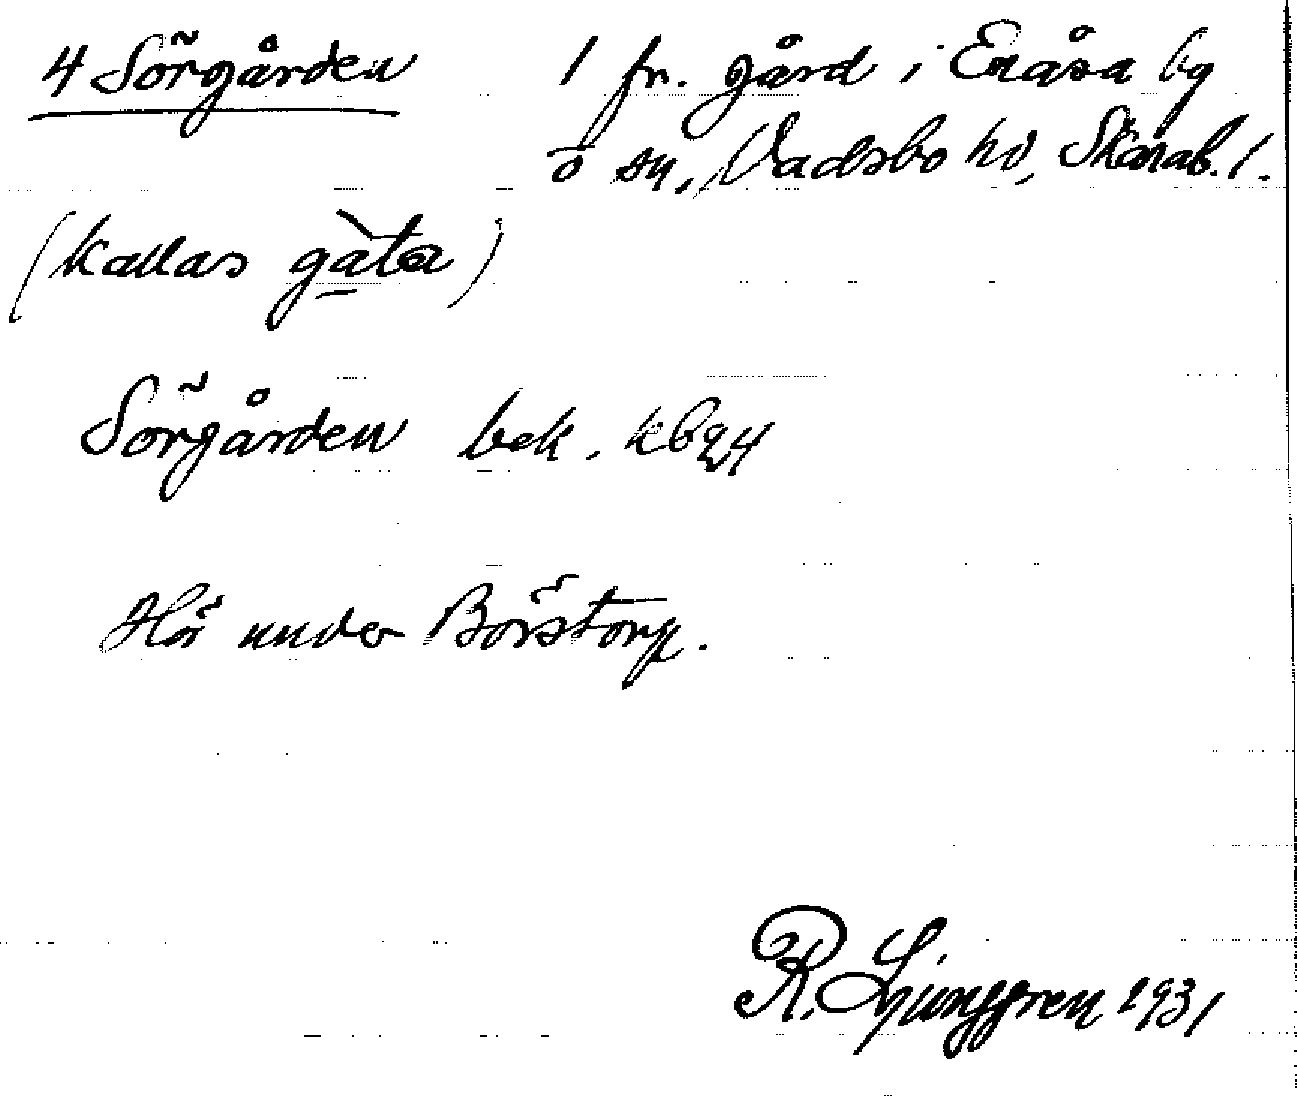 4 Sörgården 1 fr. gård i Enåsa by
o sn, Vadsbo hd, Skarab. l.
(kallas gàta)
Sörgården bek. kb 24
Hör under Börstorp.
R. Ljunggren 1931